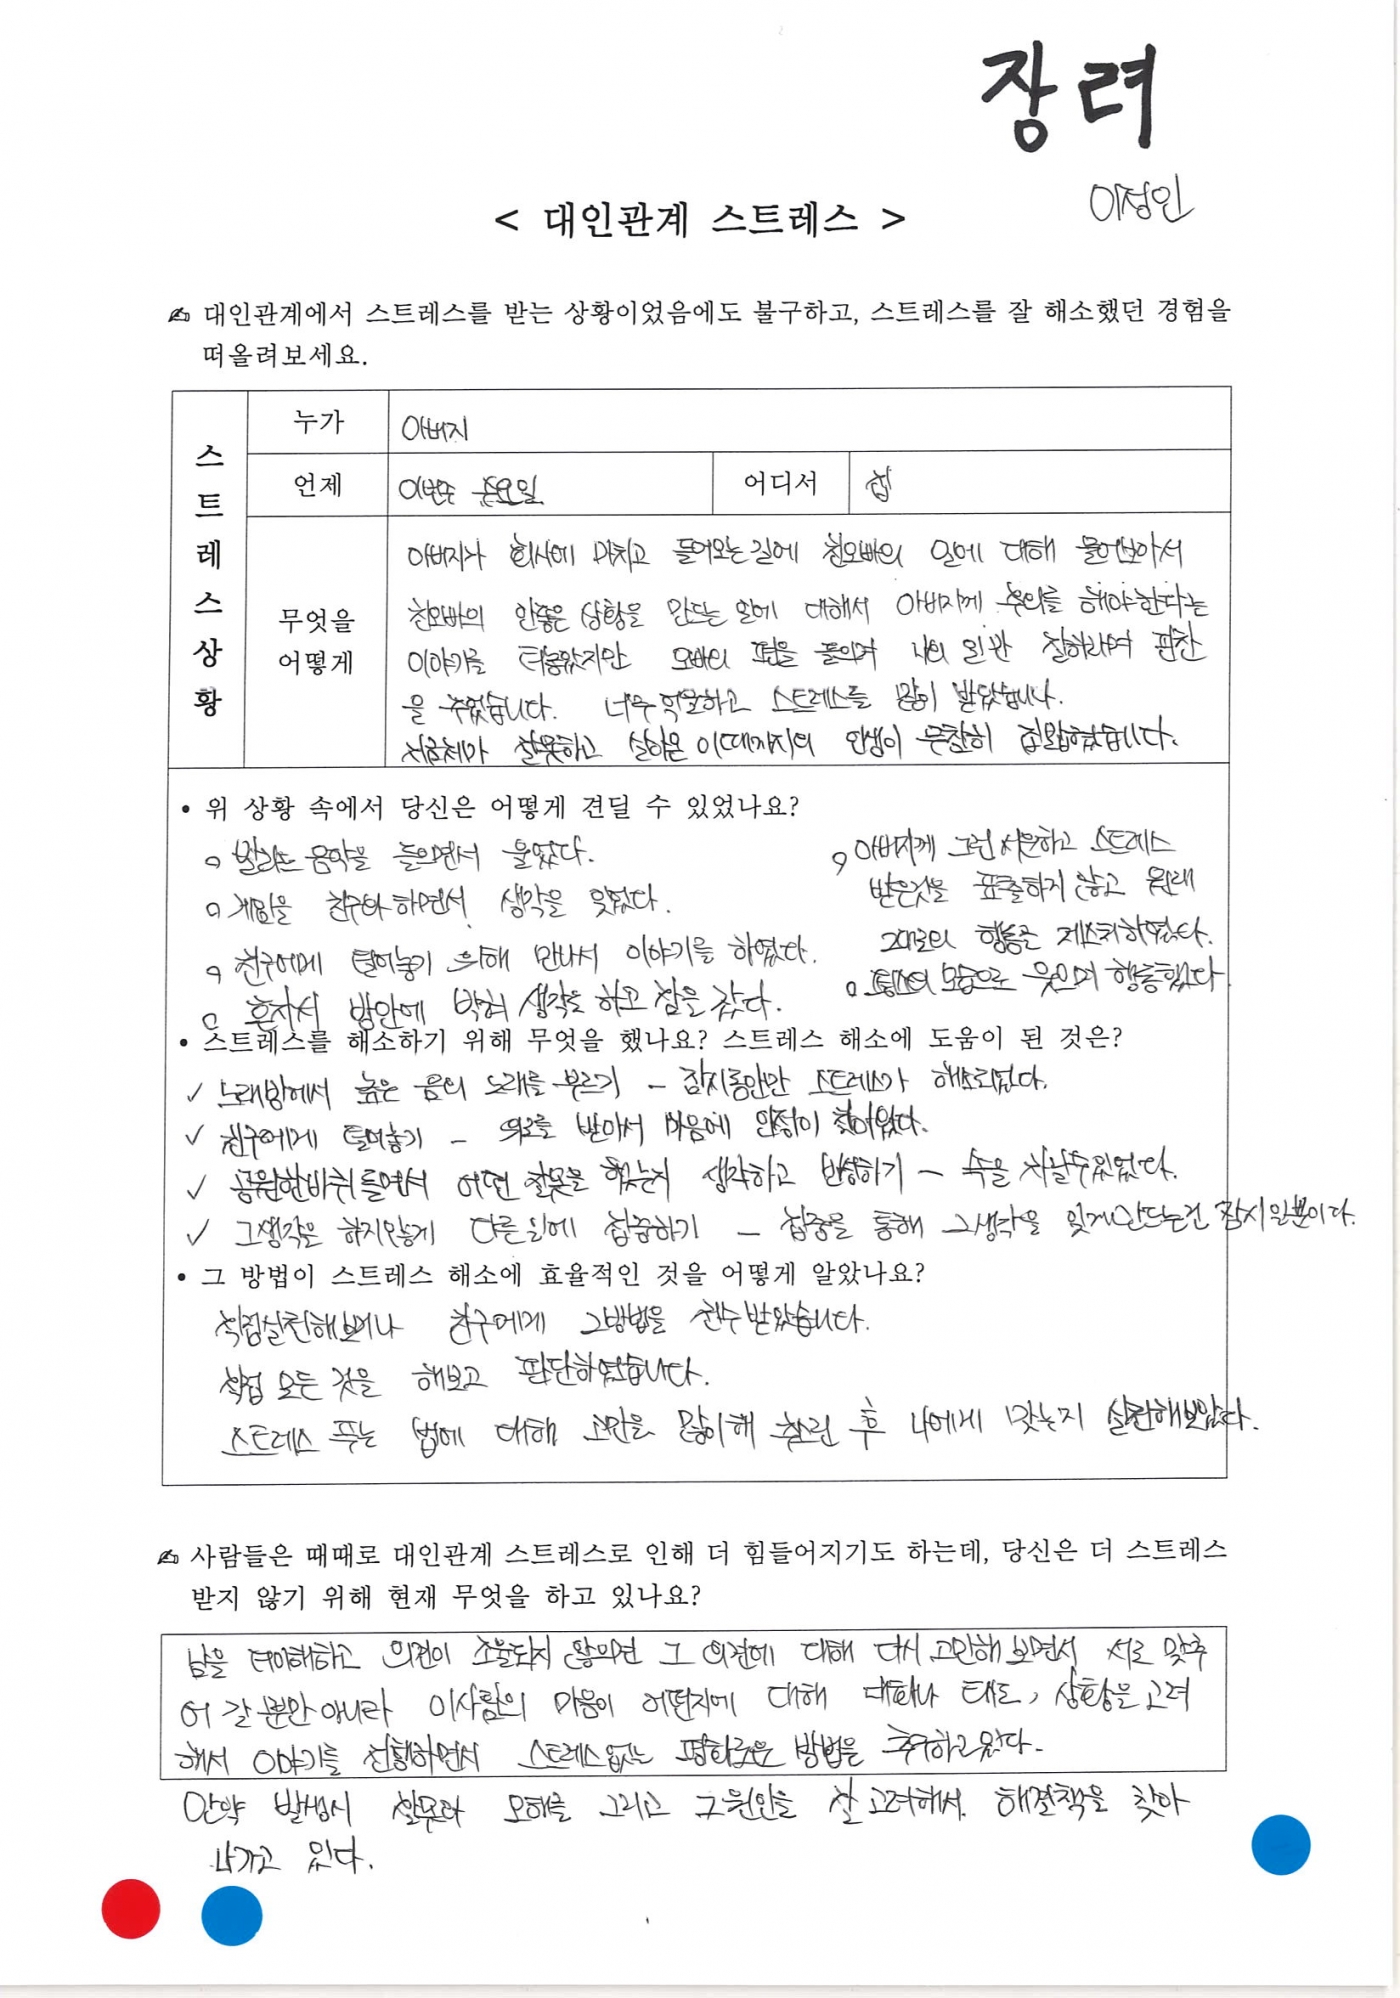 장려
이정인
< 대인관계 스트레스 >
✍ 대인관계에서 스트레스를 받는 상황이었음에도 불구하고, 스트레스를 잘 해소했던 경험을
떠올려보세요.
스트레스상황
누가
아버지
언제
이번주
어디서
집
무엇을
어떻게
아버지가 회사에 마치고 들어오는길에 친오빠의 일에 대해 물어보아서
친오빠의 안좋은 상황을 만드는 일에 대해서 아버지께 주의를 해야한다는
이야기를 털어놓았지만 오빠의 편을 들으며 나의 일만 잘하라며 핀잔
을 주었습니다. 너무 억울하고 스트레스를 많이 받았습니다.
잘못하고 살아온 이때까지의 인생이 무참히 짓밟혔습니다.
• 위 상황 속에서 당신은 어떻게 견딜 수 있었나요?
발라드 음악을 들으면서 울었다.
게임을 친구와 하면서 생각을 잊었다.
친구에게 털어놓기 위해 만나서 이야기를 하였다.
혼자서 방안에 박혀 생각을 하고 잠을 잤다.
아버지께 그런 서운하고 스트레스
받은것을 표출하지 않고 원래
그대로의 행동은 제스처하였다.
평소의 모습으로 웃으며 행동했다
• 스트레스를 해소하기 위해 무엇을 했나요? 스트레스 해소에 도움이 된 것은?
✓ 노래방에서 높은 음의 노래를 부르기 - 잠시동안만 스트레스가 해소되었다.
✓ 친구에게 털어놓기 - 위로를 받아서 마음에 안정이 찾아왔다.
✓ 공원한바퀴돌면서 어떤 잘못을 했는지 생각하고 반성하기 - 속을 차릴수있었다.
✓ 그생각은 하지않게 다른일에 집중하기 - 집중을 통해 그생각을 잊게만드는건 잠시일뿐이다.
• 그 방법이 스트레스 해소에 효율적인 것을 어떻게 알았나요?
직접실천해보거나 친구에게 그방법을 전수받았습니다.
직접 모든 것을 해보고 판단하였습니다.
스트레스 푸는 법에 대해 고민을 많이해 추린 후 나에게 맞는지 실천해보았다.
✍ 사람들은 때때로 대인관계 스트레스로 인해 더 힘들어지기도 하는데, 당신은 더 스트레스
받지 않기 위해 현재 무엇을 하고 있나요?
남을 더이해하고 의견이 조율되지 않으면 그 의견에 대해 다시 고민해보면서 서로 맞추
어 갈 뿐만 아니라 이사람의 마음이 어떤지에 대해 대화나 태도, 상황을 고려
해서 이야기를 진행하면서 스트레스없는 평화로운 방법을 추구하고있다.
만약 발생시 잘못과 오해를 그리고 그원인을 잘 고려해서 해결책을 찾아
나가고 있다.